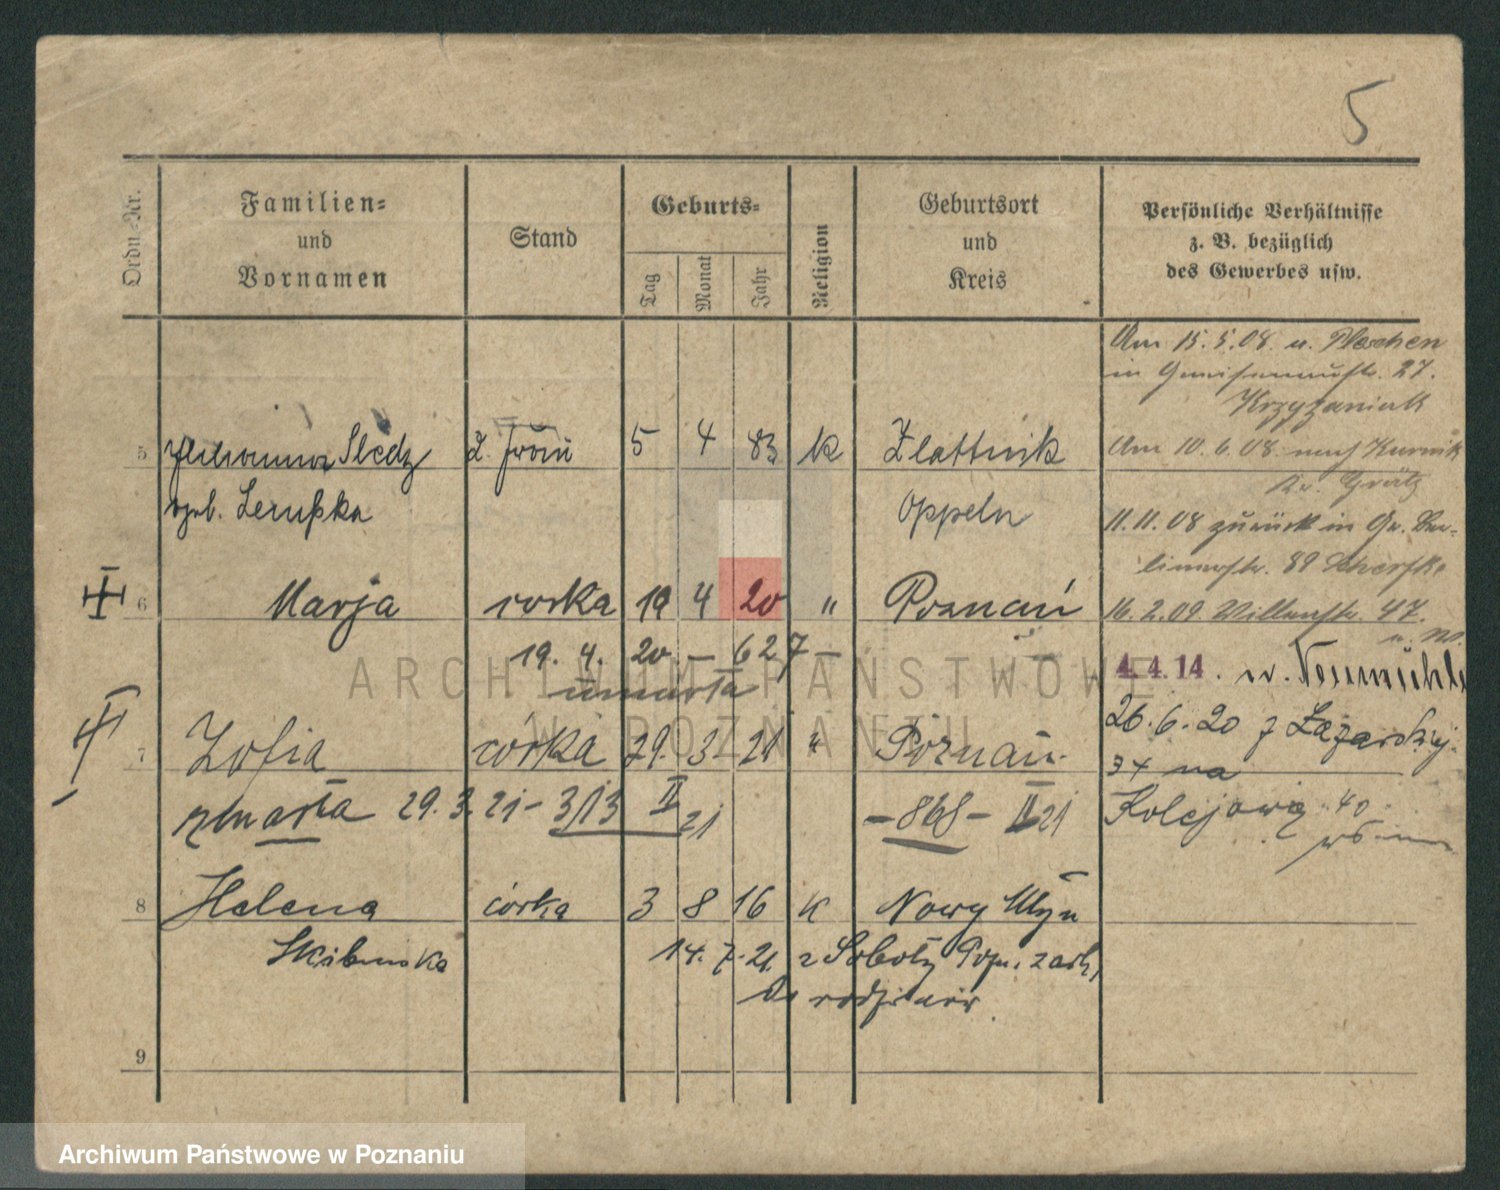 5
Ordn.-Nr.
Familien-
und
Vornamen
Stand
Geburts-
Tag
Monat
Jahr
Religion
Geburtsort
und
Kreis
Persönliche Verhältnisse
z. B. bezüglich
des Gewerbes usw.
Am 15.5.08. n. Pleschen
in Gneisenaustr. 27.
Krzyzaniak
5 Sledz 5 4 83 k Zlattnik
Am 10.6.08 nach Kurnik
Kr. Grätz
Oppeln
11.11.08 zurück in Gr. Ber-
linerstr. 89
6 Marja corka 19 4 20 " Poznań
16.2.09. 47.
19. 4. 20 – 627 –
umarła
4.4.14. n. Neumühle
26.6.20 z Łazarskiej
7 Zofia córka 29. 3 21 " Poznań
34 na
zmarła 29.3.21 – 313 II 21 – 868 – II 21
Kolejową 40
8 Helena córka 3 8 16 k Nowy Młyn
14. 7. 21. z Soboty Pozn. zach.
Do rodziców
9
ARCHIWUM PAŃSTWOWE
W POZNANIU
Archiwum Państwowe w Poznaniu